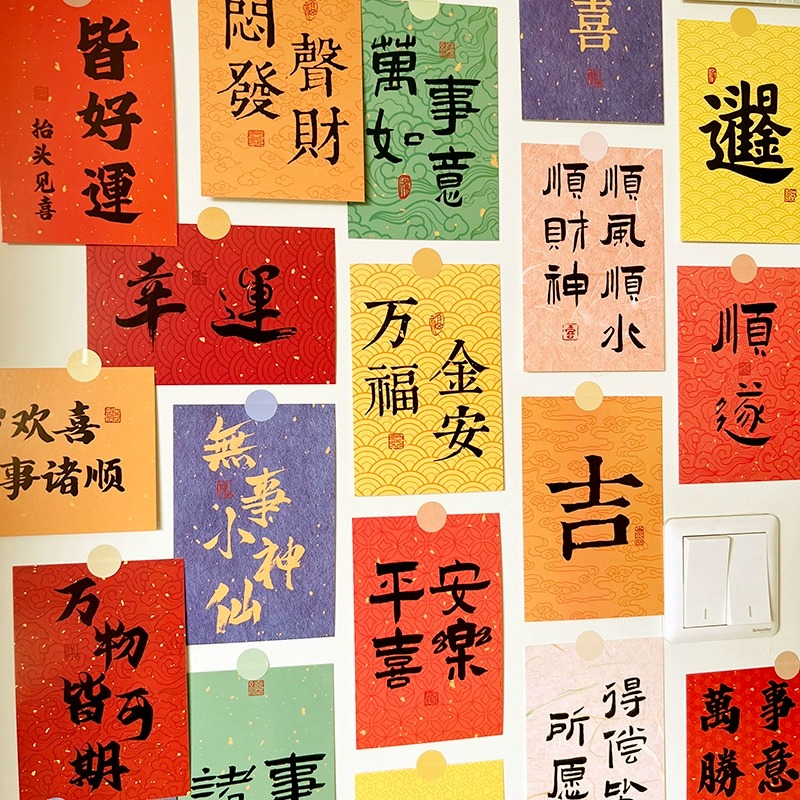 皆好運
抬头见喜
悶聲
發財
萬事
如意
喜
順風順水
順財神
幸運
万福
金安
順遂
欢喜
事诸顺
無事
小神仙
吉
平安
喜樂
万物
皆可
期
諸事
得偿
所愿
萬事
勝意
Schneider